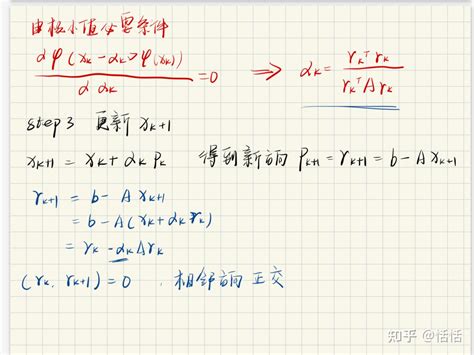 由极小值必要条件
dφ(xk - αk▽φ(xk)) / dα = 0 ⟹ αk = rkᵀrk / rkᵀArk
step3 更新 xk+1
xk+1 = xk + αk pk 得到新方向 pk+1 = rk+1 = b - Axk+1
rk+1 = b - Axk+1
= b - A(xk + αk rk)
= rk - αkArk
(rk, rk+1) = 0 . 相邻方向正交
知乎 @恬恬